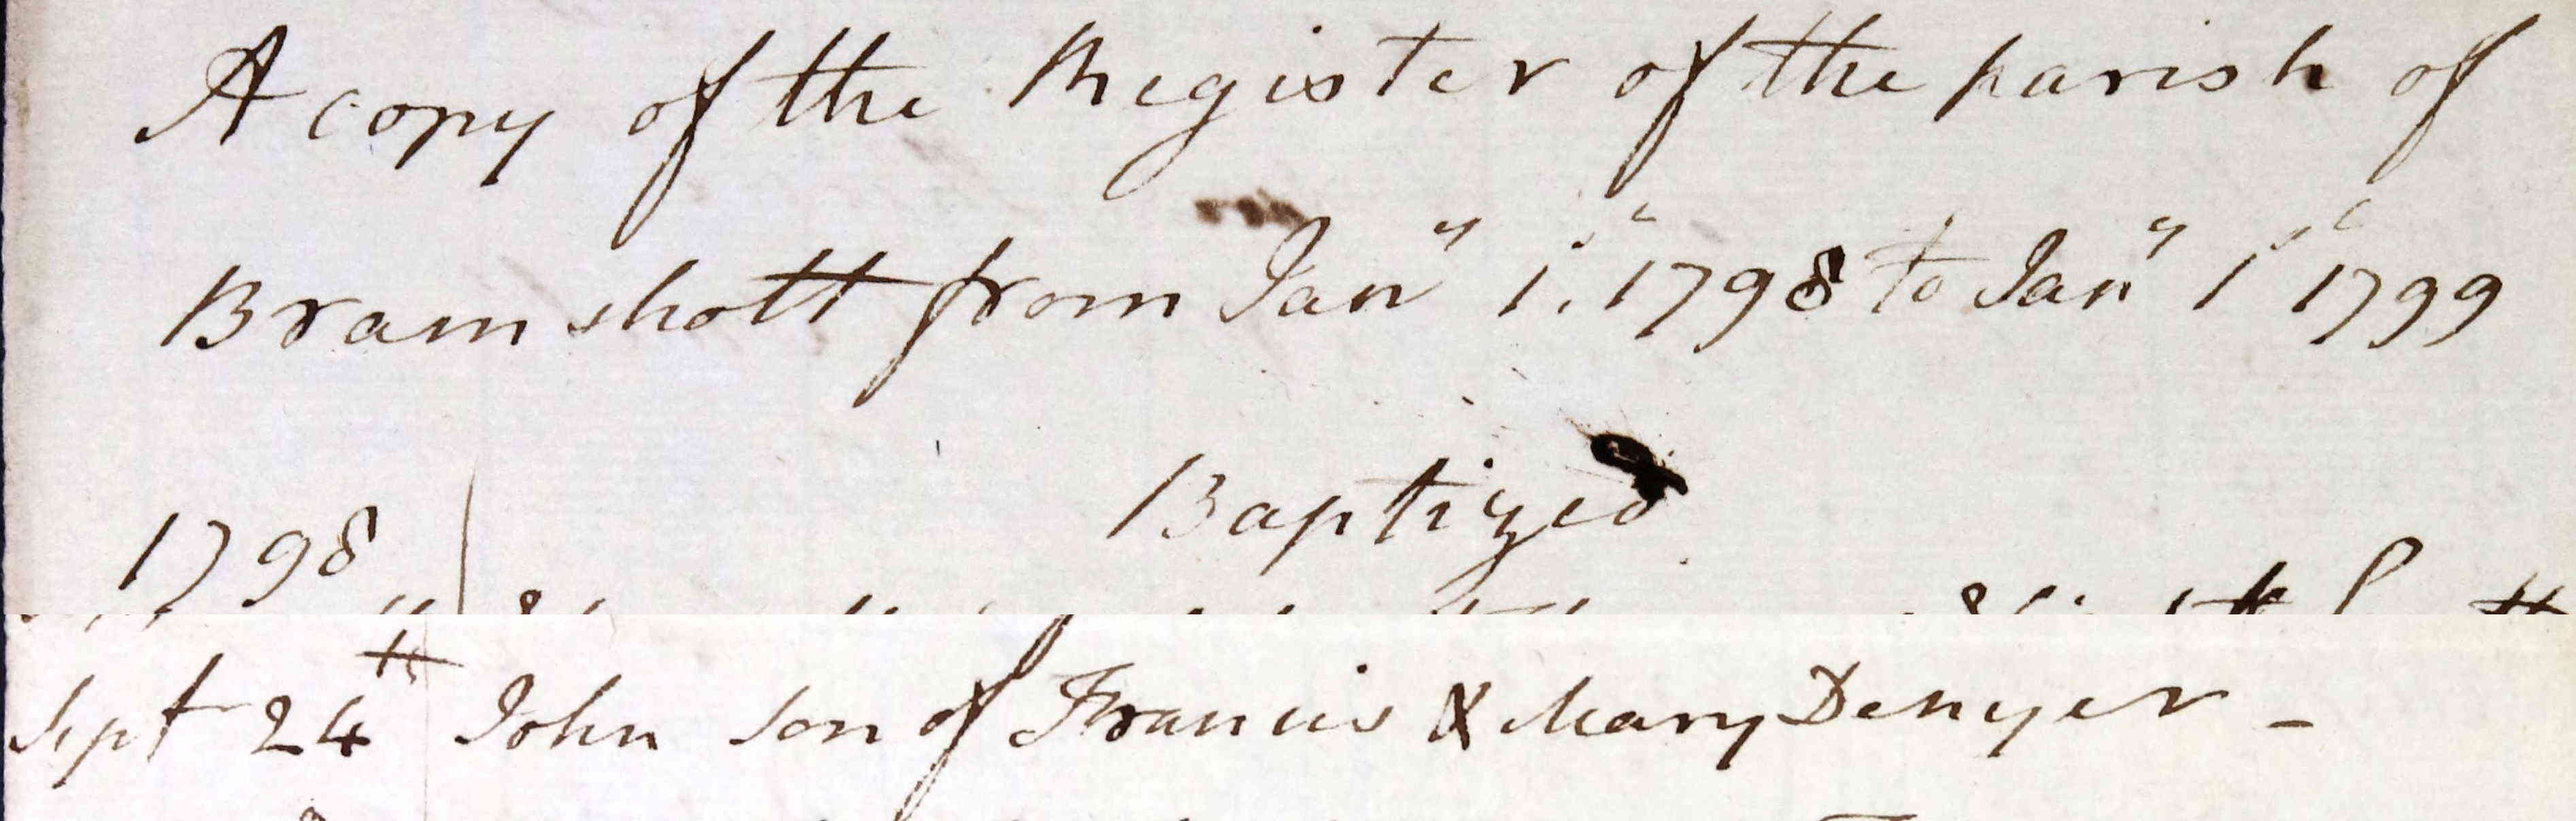 A copy of the Register of the parish of
Bramshott from Jany 1st. 1798 to Jany 1st 1799
Baptized
1798
Sept 24th John son of Francis & Mary Denyer -